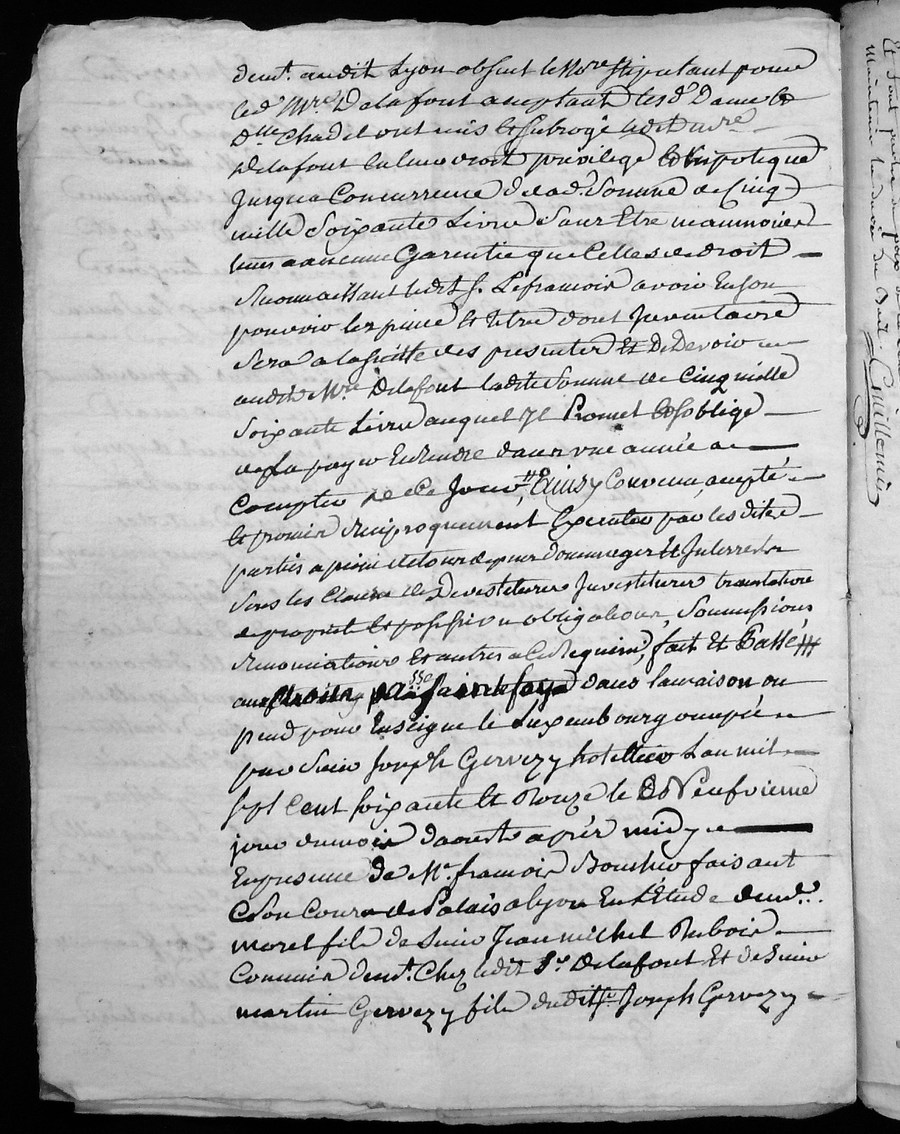 demt. audit Lyon absent le Nore stipulant pour
led. Mre. Delafont acceptant lesd. Dame &
Dlle Chadel ont mis et subrogé ledit mre.
Delafont en leur droit privilege et hipoteque
Jusqua Concurrence de lad. Somme de Cinq
mille Soixante Livre Sans Etre
aucune Garentie que Celles de droit
Reconnaissant ledit S. Lefrancois avoir En son
pouvoir les piece et titre dont Inventaire
Sera a la suitte des presentes Et De Devoir
audit Mre. Delafont ladite Somme de Cinq mille
Soixante Livre auquel Il Promet et soblige
de La payer En dans une année a
Compter de Ce Jour, Ainsy Convenu, accepté
et promis Reciproquement Executer par les dites
parties a peine de tous depens dommages et Interrests
Sous les Clauses de Devestitures Investitures translature
de proprieté et possession obligations, Soumissions
Renonciations Et autres a Ce Requises, fait Et Passé
aux dans la maison ou
pend pour Enseigne le Luxembourg occupée
par Sieur Joseph Gervezy hottellier Lan mil
sept Cent soixante et Onze le Neufvieme
jour du mois daouste après midy
En presence de Mr. francois faisant
Son Cours de Palais a lyon En L'Etude demt.
morel fils de Sieur Jean michel Duboir
Commis demt. Chez ledit Sr. Delafont Et de Sieur
martin Gervezy fils dudit Sr. Joseph Gervezy
Et dont
maintenir du Bail. Guillemin